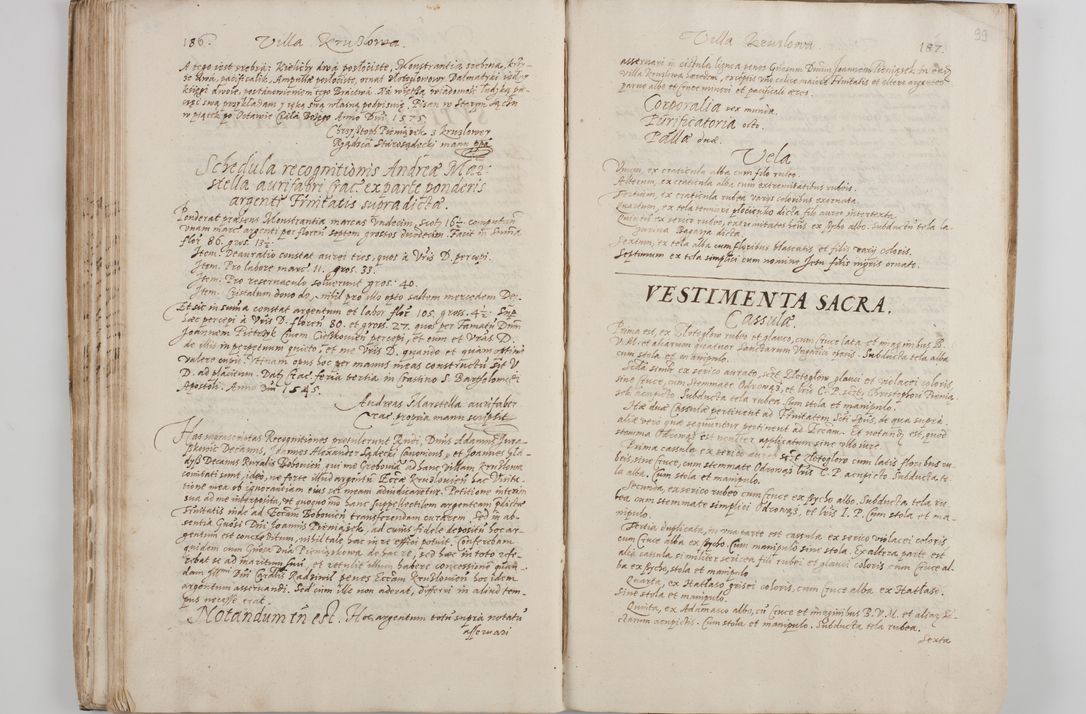 186. Villa Kruslowa.
A tego iest srebra: Kielichy dwá pozłociste, Monstrantia srebrna,
se dwá, pacificalik, Ampułki pozłociste, ornat
księgi dwoie, postanowieniem tego Bráctwá. Ná
ręką swą własną podpisuię. Pisan w Starym Sączu
w piątek po Octawie Ciáła Bożego Anno Dni 1575.
Chrysztoph Pieniążek z Kruzlowey
Starosądecki manu ppa
Schedula recognitionis Andreæ Mar-
stella aurifabri Crac. ex parte ponderis
argenti Trinitatis supradictæ.
Ponderat præsens Monstrantia marcas undecim, scot. 16½ computando
unam marc. argenti per floren. septem grossos duodecim. Facit in summa
flor. 86. gros. 13½.
Item. Deauratio constat aurei tres, quos à Vris D. percepi.
Item. Pro labore marc. 11. gros. 33.
Item. Pro reservaculo solverunt gros. 40.
Item. Cristalum dono do, nihil pro illo opto saltem mercedem Dei.
Et sic in summa constat argentum et labor flor. 105. gros. 4½.
hæc percepi à Vris D. floren. 80. et gros. 27. quos per famatum Dnm
Joannem Civem percepi, et eum et Vras D.
de illis in perpetuum quieto, et me Vris D. quando et quam optime
valere cupio. Utinam opus hoc per manus meas constructum sit V.
D. ad placitum. Dat. Crac. feria tertia in Crastino S. Bartholomei
Apostoli. Anno Dni 1545.
Andreas Marstella aurifaber
Crac. propria manu scripsit
Has suprascriptas Recognitiones protulerunt Rndi Dnis Adamus
Decanus, Joannes Alexander Łądecki Canonicus, et Joannes
Decanus Ruralis Bobovien. qui me Grebovia ad hanc Villam Kruslowa
comitati sunt, ideo, ne forte illud argentum Ecclæ Kruslovien. hac Visita-
tione mea ob ignorantiam eius rei meam adiudicaretur. Petitione interim
sua ad me interposita, et quoquo modo hanc supellectilem argenteam prædictæ
Trinitatis inde ad Ecclam Bobovien. transferendam curarem. Sed in ab-
sentia Gnosi Dni Joannis Pieniążek, ad cuius fidele depositum hoc ar-
gentum est concreditum, nihil tale hac in re effici potuit. Conferebam
quidem cum Gnosa Dna Pieniązkowa de hac re, sed hæc in toto refe-
rebat se ad maritum sui, et retulit illum habere concessionem quan-
dam Dni Cardlis Radziwil penes Ecclam Kruslovien. hoc idem
argentum asservandi. Sed cum ille non aderat, differri in aliud tem-
pus necesse erat.
Notandum tn est. Hoc argentum totum supra notatum
asservari
Villa Kruslowa. 187. 99
asservari in cistula lignea penes Gnosum Dnum Joannem Pieniążek in ead.
villa Kruslowa hæredem, exceptis uno calice maiore Trinitatis et altero argenteo
parvo albo et cruce minori et pacificali æreo.
Corporalia sex munda.
Purificatoria octo.
Pallæ duæ.
Vela
Unum, ex craticula alba cum filo rubeo.
Alterum, ex craticula alba cum extremitatibus rubeis.
Tertium, ex craticula rubea variis coloribus exornata.
Quartum, ex tela tenuiore płocienko dicta filo aureo intertexta.
Quintum ex serico rubeo, extremitates eius ex sycho albo. subductum tela la-
zurina Bagazya dicta.
Sextum, ex tela alba cum floribus blascatis, et filis varii coloris.
Septimum ex tela simplici cum nomine Jesu filis nigris ornato.
VESTIMENTA SACRA.
Cassulæ.
Prima est, ex Złotogłow rubro et glauco, cum cruce lata et imaginibus B.
V. M. et aliarum quatuor Sanctarum Virginum operis. Subducta tela alba
cum stola et manipulo.
Scda similr. ex serico aurato, sct. Złotogłow, glauci et violacei coloris,
sine cruce, cum stemmate Odrowąz, et lris C. P. sctt. Christophori Pienią-
zek acupicto. Subducta tela rubea. Cum stola et manipulo.
Hæ duæ Cassulæ pertinent ad Trinitatem Scti Spus, de qua supra,
aliæ vero quæ sequuntur pertinent ad Ecclam. Et notandum est, quod
stemma Odrowąz est noviter applicatum sine ullo iure.
Prima cassula ex serico aureo sctt Złotogłow cum latis floribus ru-
beis, sine Cruce, cum stemmate Odrowąz lris C. P. acupicto. Subducta te-
la alba. Cum stola et manipulo.
Secunda, ex serico rubeo cum cruce ex sycho albo. Subducta tela ru-
bea cum stemmate simplici Odrowąz, et lris I. P. Cum stola et ma-
nipulo.
Tertia duplicata, in una parte est cassula ex serico violacei coloris
cum Cruce alba ex sycho. Cum manipulo sine stola. Ex altera parte est
alia cassula similiter sericea fili rubri et glauci coloris cum Cruce al-
ba ex sycho, stola et manipulo
Quarta, ex Hatłaso grisei coloris, cum Cruce alba ex Hatłaso.
Sine stola et manipulo.
Quinta, ex Adamasco albo, cu Cruce et imaginibus B. V. M. et aliar. S-
ctarum acupictis. Cum stola et manipulo. Subducta tela rubea.
Sexta